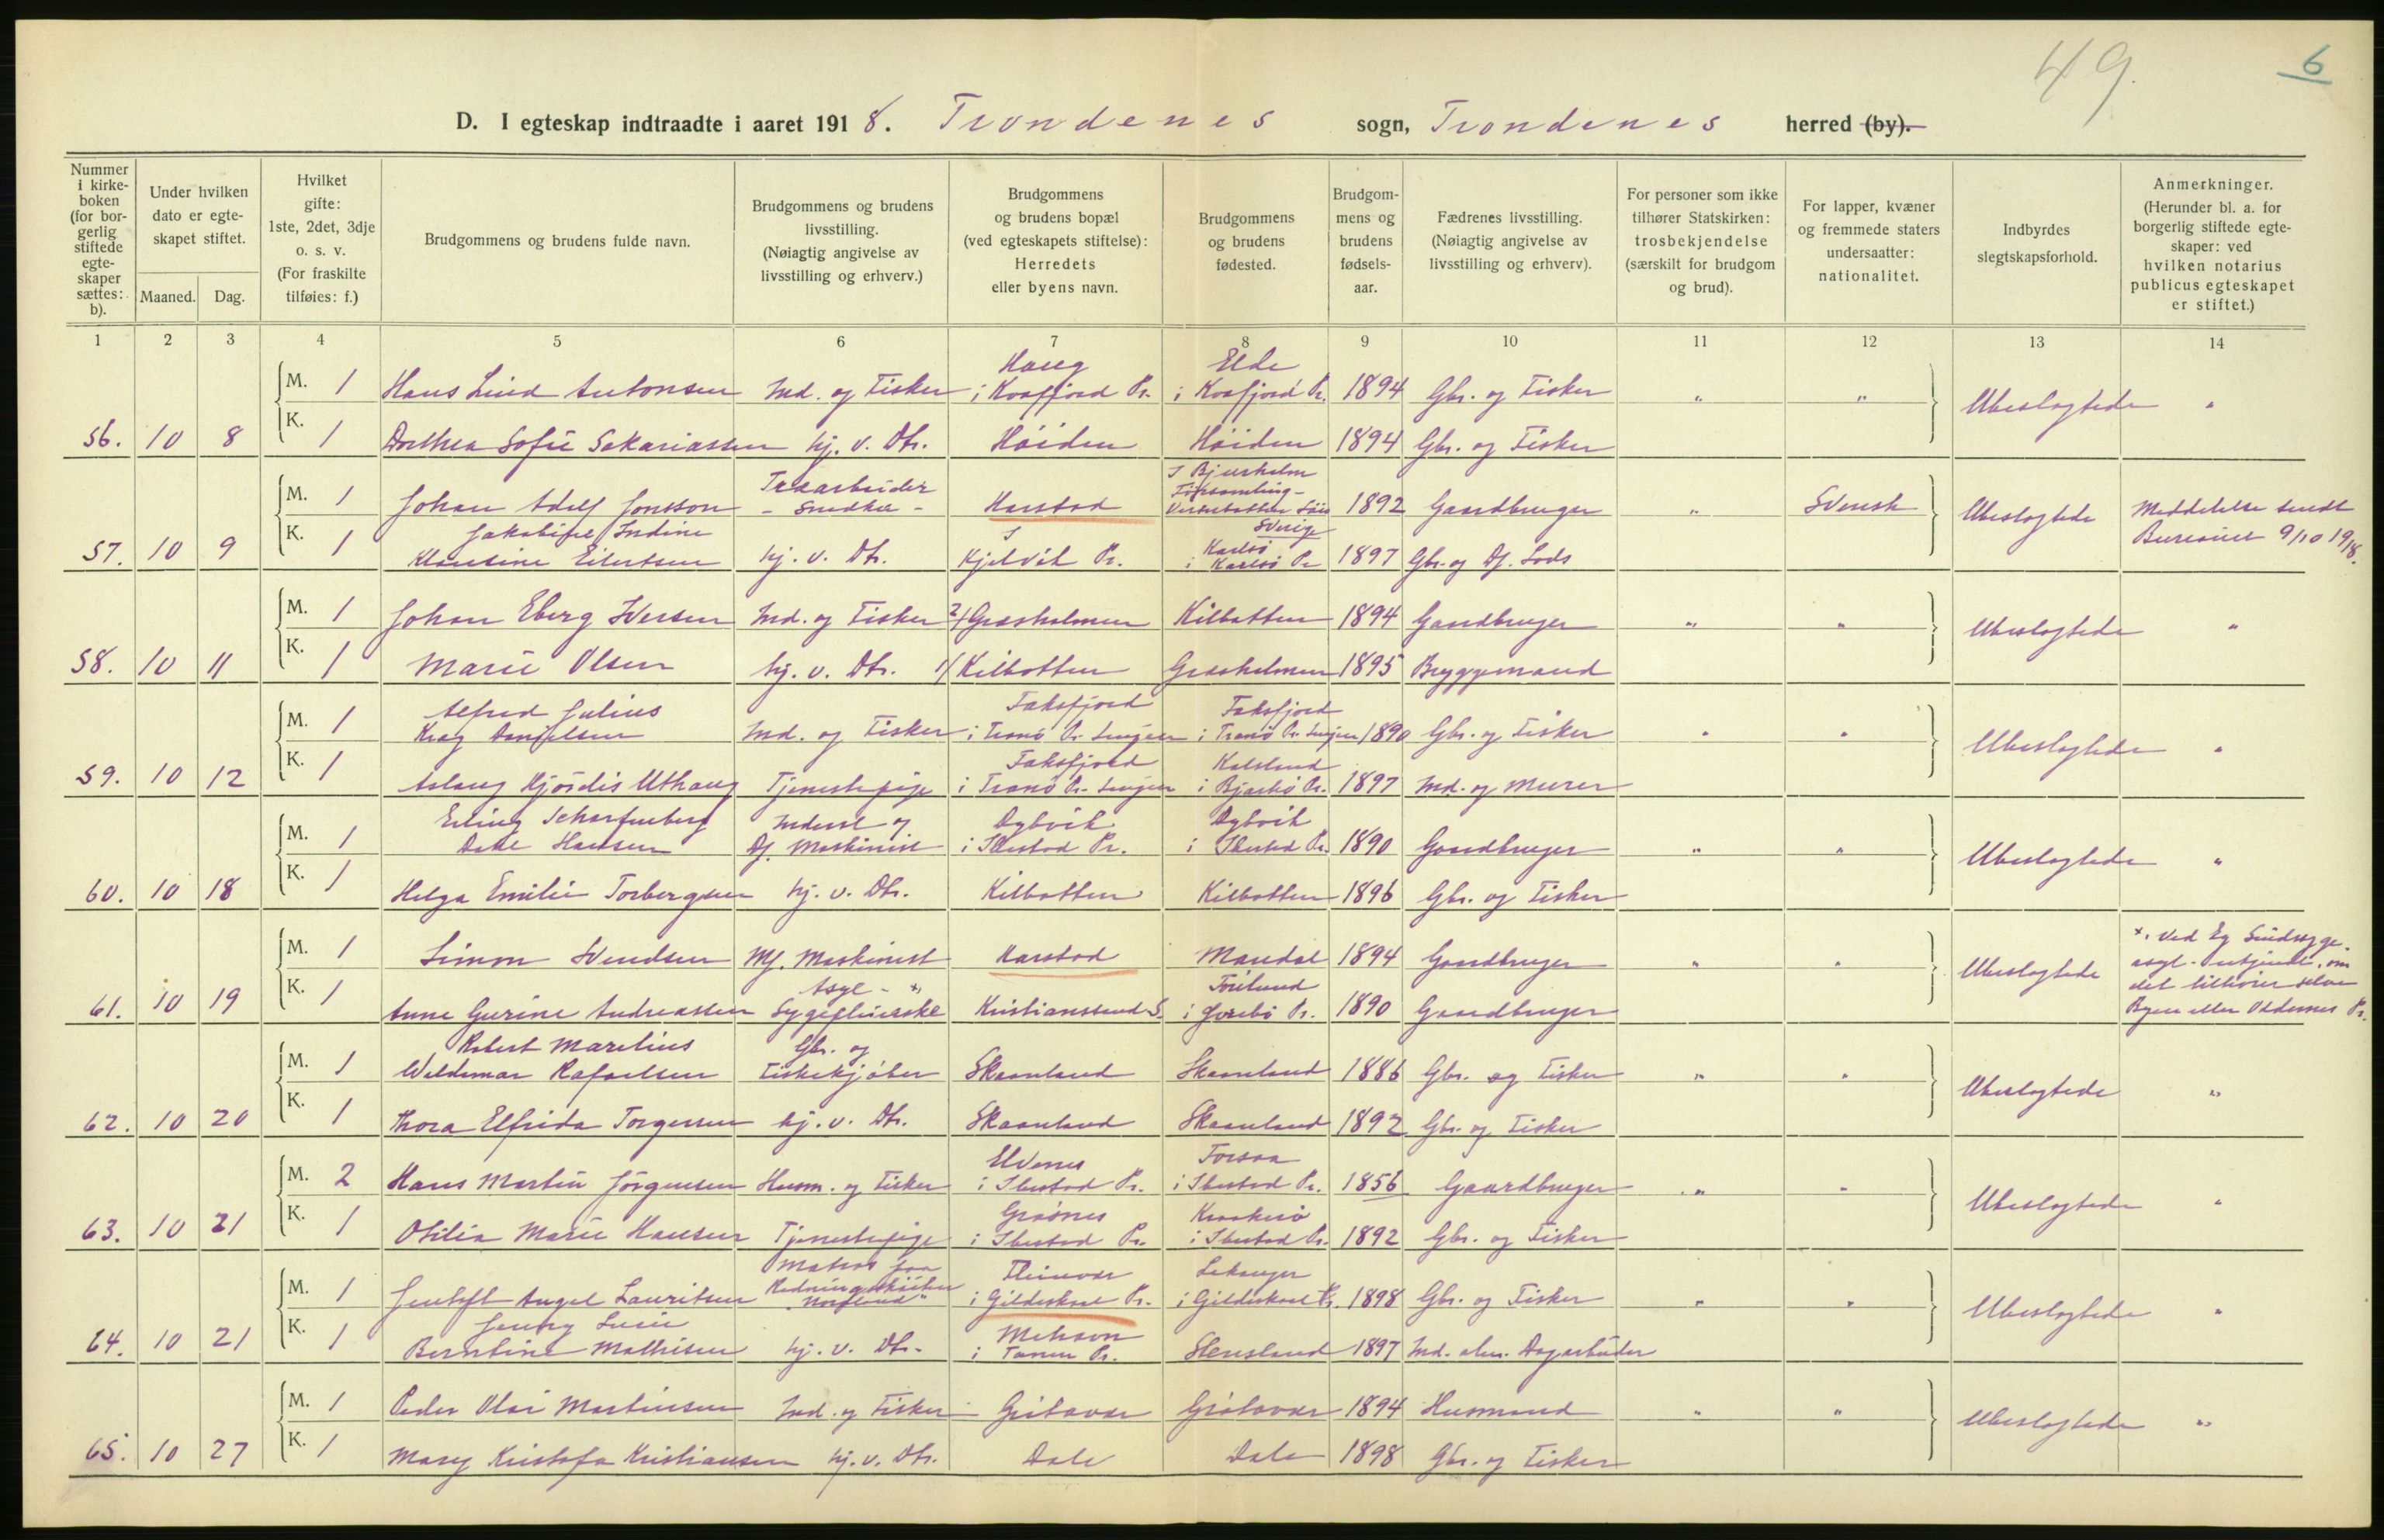 49. 6
D. I egteskap indtraadte i aaret 1918. Trondenes sogn, Trondenes herred (by).
Nummer i kirkeboken (for borgerlig stiftede egteskaper sættes: b).
Under hvilken dato er egteskapet stiftet.
Maaned. Dag.
Hvilket gifte: 1ste, 2det, 3dje o. s. v. (For fraskilte tilføies: f.)
Brudgommens og brudens fulde navn.
Brudgommens og brudens livsstilling. (Nøiagtig angivelse av livsstilling og erhverv.)
Brudgommens og brudens bopæl (ved egteskapets stiftelse): Herredets eller byens navn.
Brudgommens og brudens fødested.
Brudgommens og brudens fødselsaar.
Fædrenes livsstilling. (Nøiagtig angivelse av livsstilling og erhverv).
For personer som ikke tilhører Statskirken: trosbekjendelse (særskilt for brudgom og brud).
For lapper, kvæner og fremmede staters undersaatter: nationalitet.
Indbyrdes slegtskapsforhold.
Anmerkninger. (Herunder bl. a. for borgerlig stiftede egteskaper: ved hvilken notarius publicus egteskapet er stiftet.)
1 2 3 4 5 6 7 8 9 10 11 12 13 14
M. 1 Hans Lind Antonsen Ind. og Fisker Haug i Kvæfjord Pr. Elde i Kvæfjord Pr. 1894 Gbr. og Fisker " " Ubeslegtede "
56. 10 8 K. 1 Dorthea Sofie Sakariassen hj. v. Dtr. Høiden Høiden 1894 Gbr. og Fisker
M. 1 Johan Adolf Jonsson Træarbeider - Snedker - Harstad I Bjurholm Forsamling - Vesterbotten Län Sverige 1892 Gaardbruger " Svensk Ubeslegtede Meddelelse sendt Bureauet 9/10 1918.
57. 10 9 K. 1 Jakobine Indine Klausine Eilertsen hj. v. Dtr. I Kjelvik Pr. Karlsö i Karlsö Pr 1897 Gbr. og Df. Lods
M. 1 Johan Eberg Iversen Ind. og Fisker 2/ Græsholmen Kilbotten 1894 Gaardbruger " " Ubeslegtede "
58. 10 11 K. 1 Marie Olsen hj. v. Dtr. 1/ Kilbotten Græsholmen 1895 Bryggemand
M. 1 Alfred Julius Krag Danielsen Ind. og Fisker Faksfjord i Tranö Pr. Senjen Faksfjord i Tranö Pr. Senjen 1890 Gbr. og Fisker " " Ubeslegtede "
59. 10 12 K. 1 Aslaug Hjördis Uthaug Tjenestepige Faksfjord i Tranö Pr. Senjen i Bjarkö Pr. 1897 Ind. og Murer
M. 1 Erling Scharfenberg Dahl Hansen Inderst og Df. Maskinist Dybvik i Ibestad Pr. Dybvik i Ibestad Pr. 1890 Gaardbruger " " Ubeslegtede "
60. 10 18 K. 1 Helga Emilie Torbergsen hj. v. Dtr. Kilbotten Kilbotten 1896 Gbr. og Fisker
M. 1 Simon Svendsen Mf. Maskinist Harstad Mandal 1894 Gaardbruger " " Ubeslegtede x. Ved Eg Sindsyge asyl - uvisst, om det tilhører selve Byen eller Oddernes Pr.
61. 10 19 K. 1 Anne Gurine Andreassen Asyl - x Sygepleierske Kristianssand S. i Pr. 1890 Gaardbruger
M. 1 Robert Marelius Waldemar Rafaelsen Gbr. og Fiskekjöber Skaanland Skaanland 1886 Gbr. og Fisker " " Ubeslegtede "
62. 10 20 K. 1 Thora Elfrida Torgersen hj. v. Dtr. Skaanland Skaanland 1892 Gbr. og Fisker
M. 2 Hans Martin Jörgensen Husm. og Fisker Elvenes i Ibestad Pr. Forsaa i Ibestad Pr. 1856 Gaardbruger " " Ubeslegtede "
63. 10 21 K. 1 Otilia Marie Hansen Tjenestepige Grønes i Ibestad Pr. Kraakerö i Ibestad Pr. 1892 Gbr. og Fisker
M. 1 Gentoft Angel Lauritsen Matros paa Redningsskøiten Fleinvær i Gildeskaal Pr. i Gildeskaal Pr. 1898 Gbr. og Fisker " " Ubeslegtede "
64. 10 21 K. 1 Jenny Lucie Berntine Mathisen hj. v. Dtr. Mehavn i Tanen Pr. Stensland 1897 Ind. alm. Dagarbeider
M. 1 Peder Olai Martinsen Ind. og Fisker Grötavær Grötavær 1894 Husmand " " Ubeslegtede "
65. 10 27 K. 1 Mary Kristofa Kristiansen hj. v. Dtr. Dale Dale 1898 Gbr. og Fisker